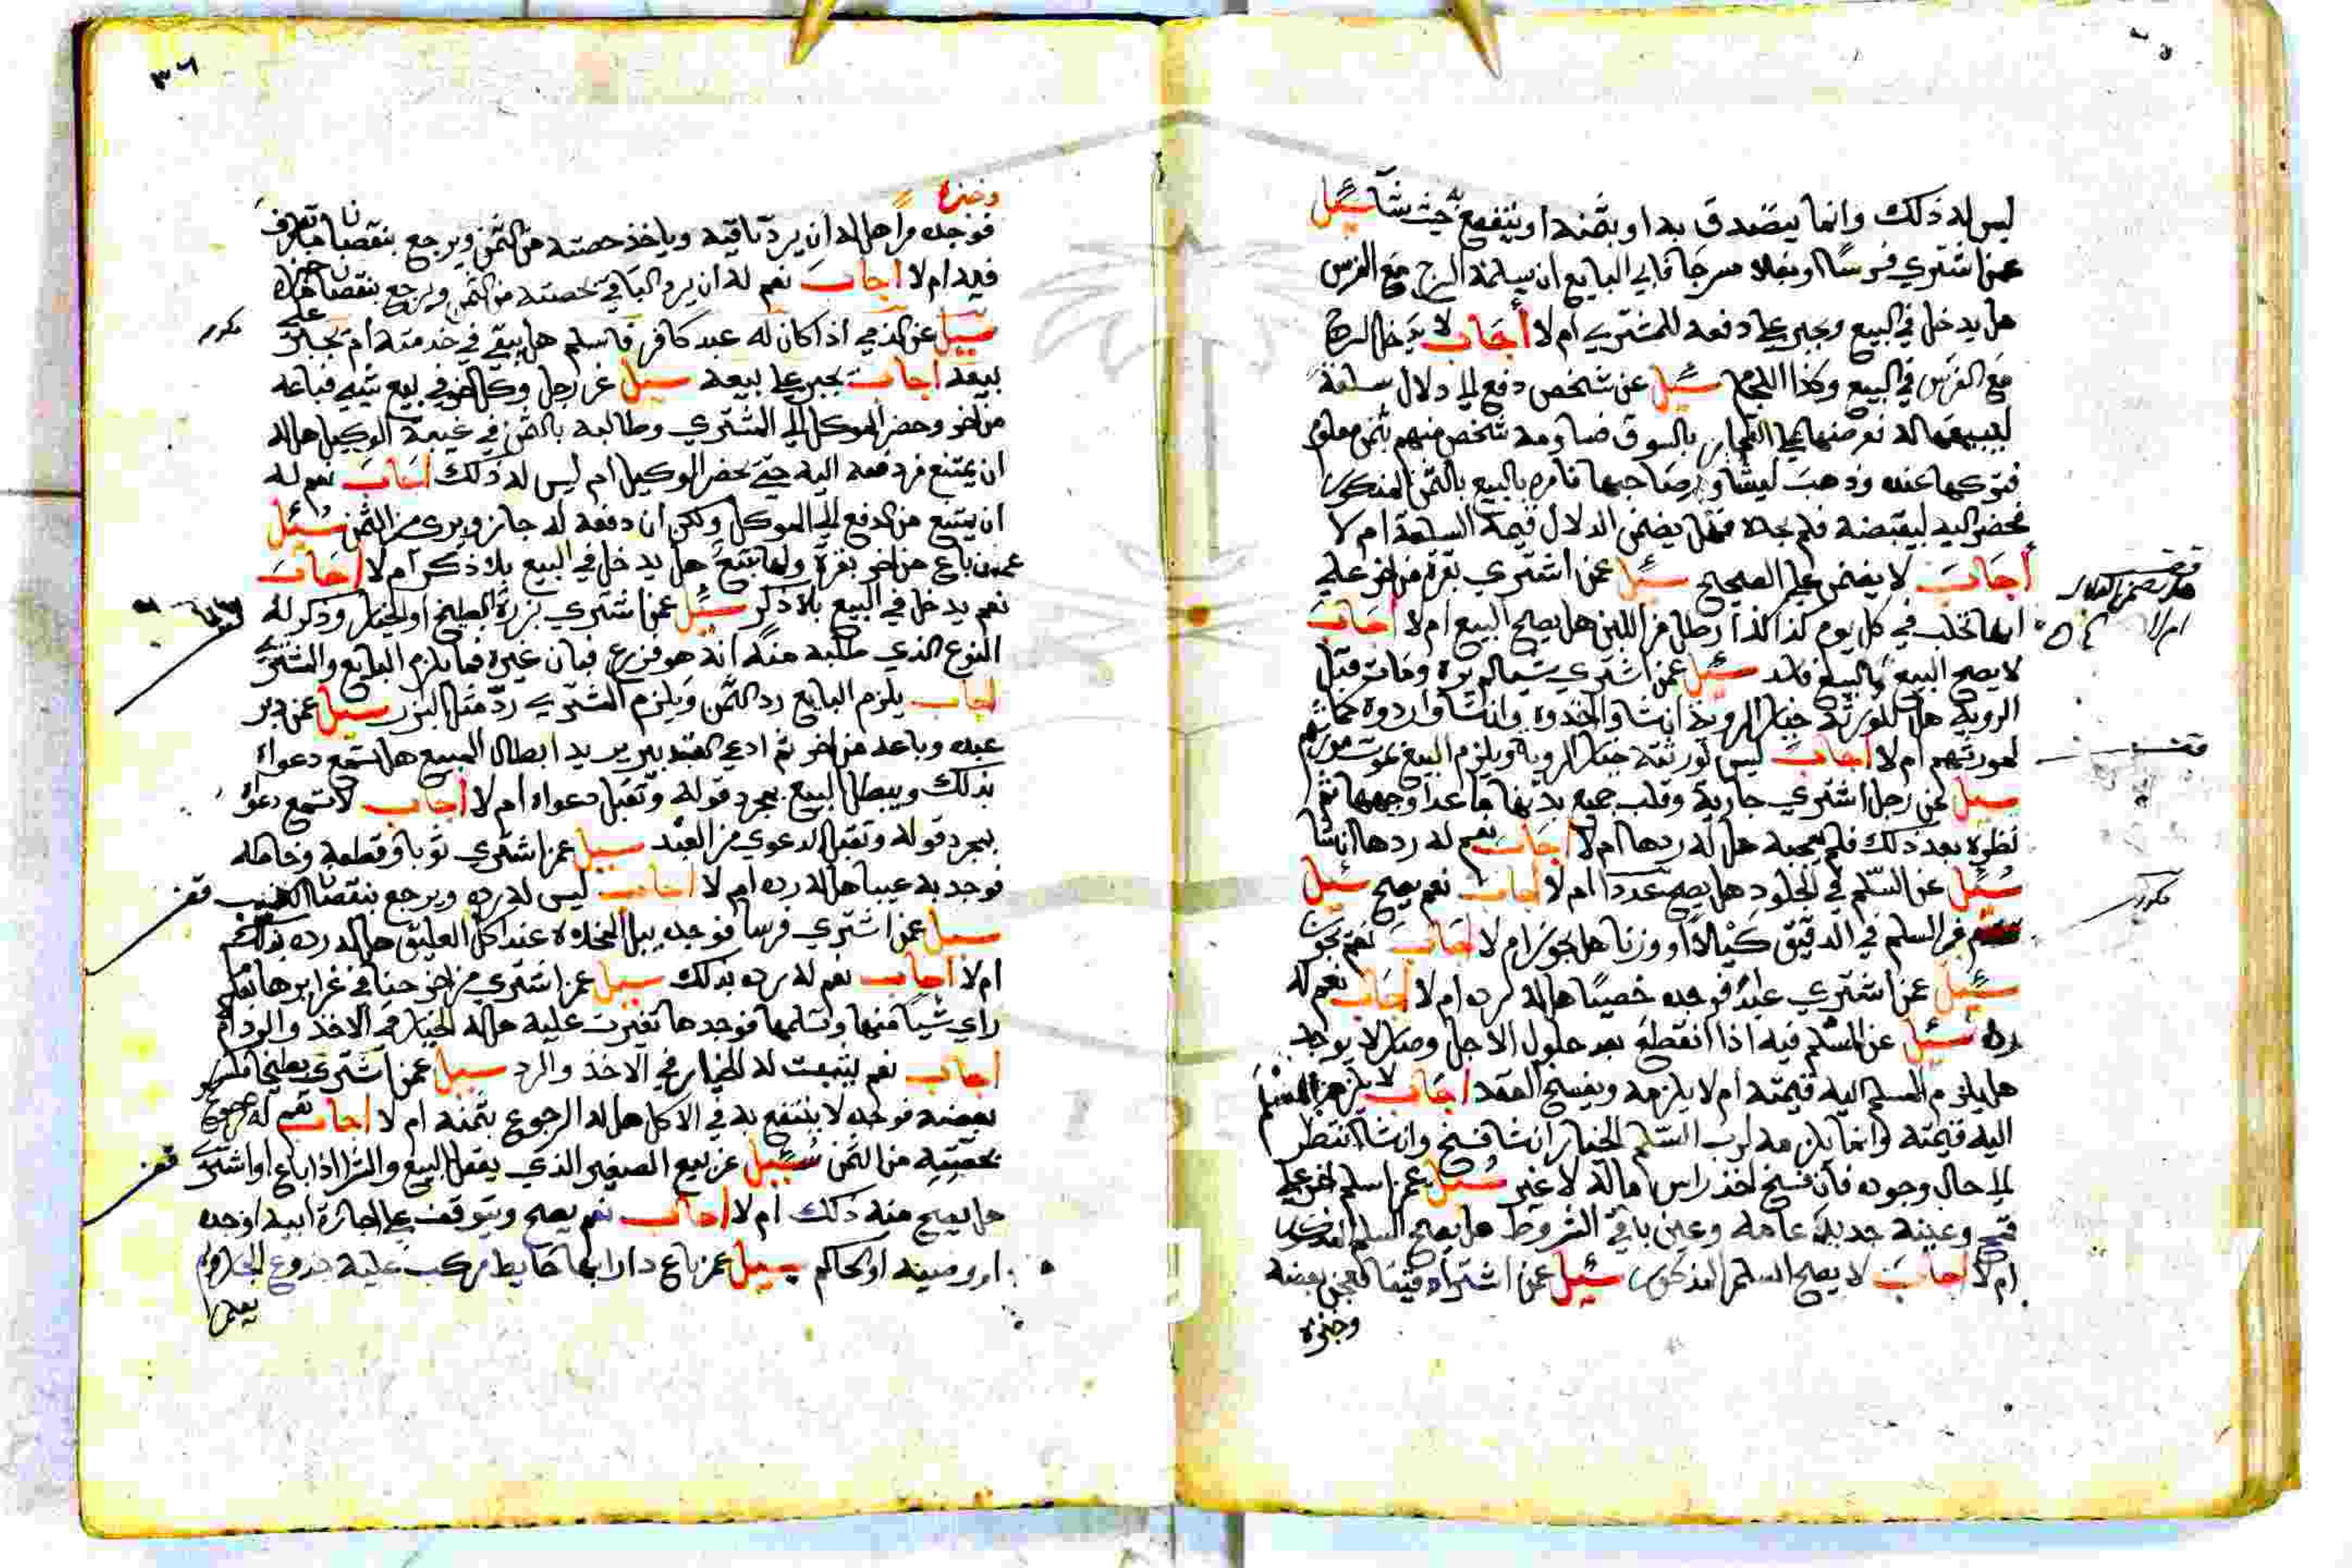 ليس له ذلك وانما يتصدق به او بثمنه او ينتفع به حيث شآ سئيل
عمن اشتري فرسًا او بغلا مسرجًا فابي البايع ان يسلمه السرج مع الفرس
هل يدخل في البيع ويجبر علي دفعه للمشتري ام لا أجَاب لا يدخل السرج
مع الفرس في البيع وكذا اللجام سئيل عن شخص دفع الي دلال سلعة
ليبيعها له فعرضها علي التجار بالسوق فساومه شخص منهم بثمن معلوم
فتركها عنده وذهب ليشاور صاحبها فامره بالبيع بالثمن المذكور
فحضر اليه ليقبضه فلم يجده فهل يضمن الدلال قيمة السلعة ام لا
أجَابَ لا يضمن علي الصحيح سئيل عمن اشتري بقرة من اخر علي
انها تحلب في كل يوم كذا كذا رطل من اللبن هل يصح البيع ام لا أجَابَ
لا يصح البيع والبيع فاسد سئيل عمن اشتري شيا لم يره ومات قبل
الروية هل للورثة خيار الروية ان شاوا اخذوه وان شاوا ردوه كما
لمورثهم ام لا اجاب ليس لورثته خيار الروية ويلزم البيع بموت مورثهم
سيل عن رجل اشتري جارية وقلب جميع بدنها ما عدا وجهها ثم
نظره بعد ذلك فلم يعجبه هل له ردها ام لا أجَاب نعم له ردها ان شا
سُئيل عن السّلم في الجلود هل يصح عددا ام لا أجاب نعم يصح سئيل
عن السلم في الدقيق كيلاً او وزنا هل يجوز ام لا أجَابَ نعم يجوز
سئيل عمن اشتري عبدًا فوجده خصيًا هل له رده ام لا أجَاب نعم له
رده سئيل عن المسْلم فيه اذا انقطع بعد حلول الاجل وصار لا يوجد
هل يلزم المسلم اليه قيمته ام لا يلزمه ويفسخ العقد اجَاب لا يلزم المسْلم
اليه قيمته وانما يلزمه لرب السّلم الخيار ان شا فسخ وان شا انتظر
الي حال وجوده فان فسخ اخذ راس ماله لا غير سُئيل عمن اسلم اخر علي
قمح وعينه جديد عامه وعين باقي الشروط هل يصح السلم المذكور
ام لا أجَابَ لا يصح السلم المذكور سئيل عمن اشترا دقيقا فعجن بعضه
وخبزه
مكرر
٣٦
وخبزه
فوجده مرًا هل له ان يرد باقيه وياخذ حصته من الثمن ويرجع بنقصان ما تصرف
فيه ام لا أجابَ نعم له ان يرد الباقي بحصته من الثمن ويرجع بنقصان ما خبزه
سئيل عن الذمي اذا كان له عبد كافر فاسلم هل يبقي في خدمته ام يجبر علي
بيعه أجاب يجبر علي بيعه سيل عن رجل وكل اخر في بيع شي فباعه
من اخر وحضر الموكل الي المشتري وطالبه بالثمن في غيبة الوكيل هل له
ان يمتنع من دفعه اليه حتي يحضر الوكيل ام ليس له ذلك أجَابَ نعم له
ان يمتنع من الدفع الي الموكل ولكن ان دفعه له جاز وبري من الثمن سُئيل
عمن باع من اخر بقرة ولها تبيع هل يدخل في البيع بلا ذكر ام لا أجَابَ
نعم يدخل في البيع بلا ذكر سئيل عمن اشتري بزر البطيخ او الخيار وذكر له
النوع الذي طلبه منه انه هو فزرع فبان غيره فما يلزم البايع والمشتري
اجاب يلزم البايع رد الثمن ويلزم المشتري ردّ مثل البزر سيل عمن دبر
عبده وباعه من اخر ثم ادعي العبد تدبير يريد ابطال المبيع هل تسمع دعواه
بذلك ويبطل البيع بمجرد قوله وتقبل دعواه ام لا أجاب لا تسمع دعواه
بمجرد قوله وتقبل الدعوي من العبد سيل عمن اشتري ثوبا وقطعه وخاطه
فوجد به عيبا هل له رده ام لا اجاب ليس له رده ويرجع بنقصان العيب
سيل عمن اشتري فرسا فوجده يبل المخلاة عند اكل العليق هل له رده بذلك
ام لا اجاب نعم له رده بذلك سيل عمن اشتري من اخر حنا في غرايرها بعد
راي شيا منها وتسلمها فوجدها تغيرت عليه هل له الخيار في الاخذ والرد ام
اجاب نعم يثبت له الخيار في الاخذ والرد سيل عمن اشتري بطيخا فكسر
بعضه فوجده لا ينتفع به في الاكل هل له الرجوع بثمنه ام لا اجاب نعم له الرجوع
بحصته من الثمن سُئيل عن بيع الصغير الذي يعقل البيع والشرا اذا باع او اشتري
هل يصح منه ذلك ام لا اجاب نعم يصح ويتوقف علي اجازة ابيه او جده
او وصيه او الحاكم سيل عمن باع دارا بها حايط مركب عليه جذوع الجار
مكرر